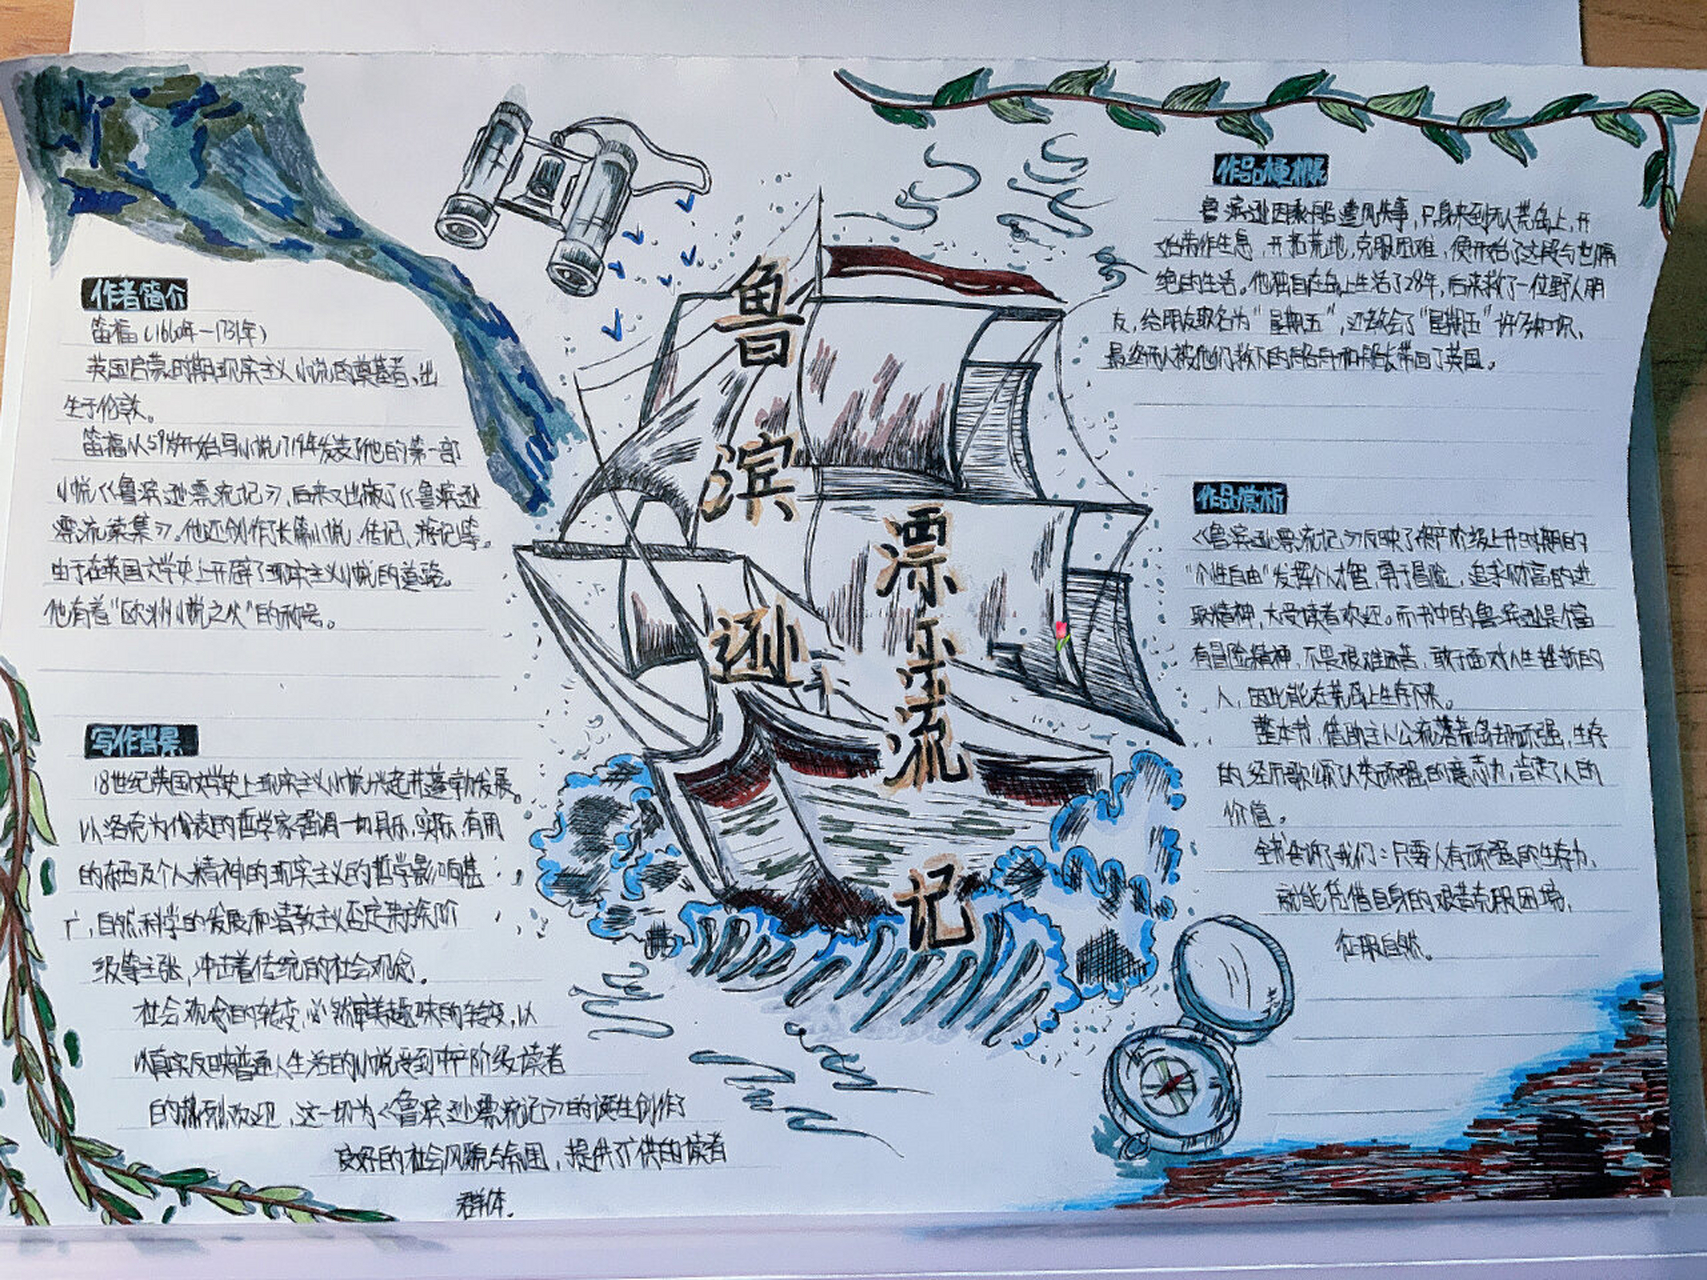 鲁滨逊
漂流记
作者简介
笛福(1660年—1731年)
英国启蒙时期现实主义小说的奠基者、出
生于伦敦。
笛福从59岁开始写小说,1719年发表了他的第一部
小说《鲁滨逊漂流记》,后来又出版了《鲁滨逊
漂流续集》。他还创作长篇小说、传记、游记等。
由于在英国文学史上开辟了现实主义小说的道路。
他有着“欧洲小说之父”的称号。
写作背景
18世纪英国文学史上现实主义小说兴起并蓬勃发展。
以洛克为代表的哲学家强调一切具体,实际,有用
的东西及个人精神的现实主义的哲学影响甚
广,自然科学的发展和清教主义否定贵族阶
级等主张,冲击着传统的社会观念。
社会观念的转变,必然审美趣味的转变,以
以真实反映普通人生活的小说受到中产阶级读者
的热烈欢迎,这一切为《鲁滨逊漂流记》的诞生创作了
良好的社会风貌与氛围,提供了供的读者
群体.
作品梗概
鲁滨逊因乘船遭风失事,只身来到无人荒岛上,开
始劳作生息,开拓荒地,克服困难,便开始了这段与世隔
绝的生活。他独自在岛上生活了28年,后来救了一位野人朋
友,给朋友取名为“星期五”,还教会了“星期五”许多知识。
最终两人被他们救下的船只和船长带回了英国。
作品赏析
《鲁滨逊漂流记》反映了资产阶级上升时期的
“个性自由”发挥个人才智,勇于冒险,追求财富的进
取精神,大受读者欢迎。而书中的鲁滨逊是个富
有冒险精神,不畏艰难困苦,敢于面对人生挫折的
人,因此能在荒岛上生存下来。
整本书,借助主人公流落荒岛却顽强,生存
的经历歌颂了人类顽强的意志力,肯定了人的
价值。
全书告诉了我们:只要人有顽强的生存力,
就能凭借自身的艰苦克服困境,
征服自然。